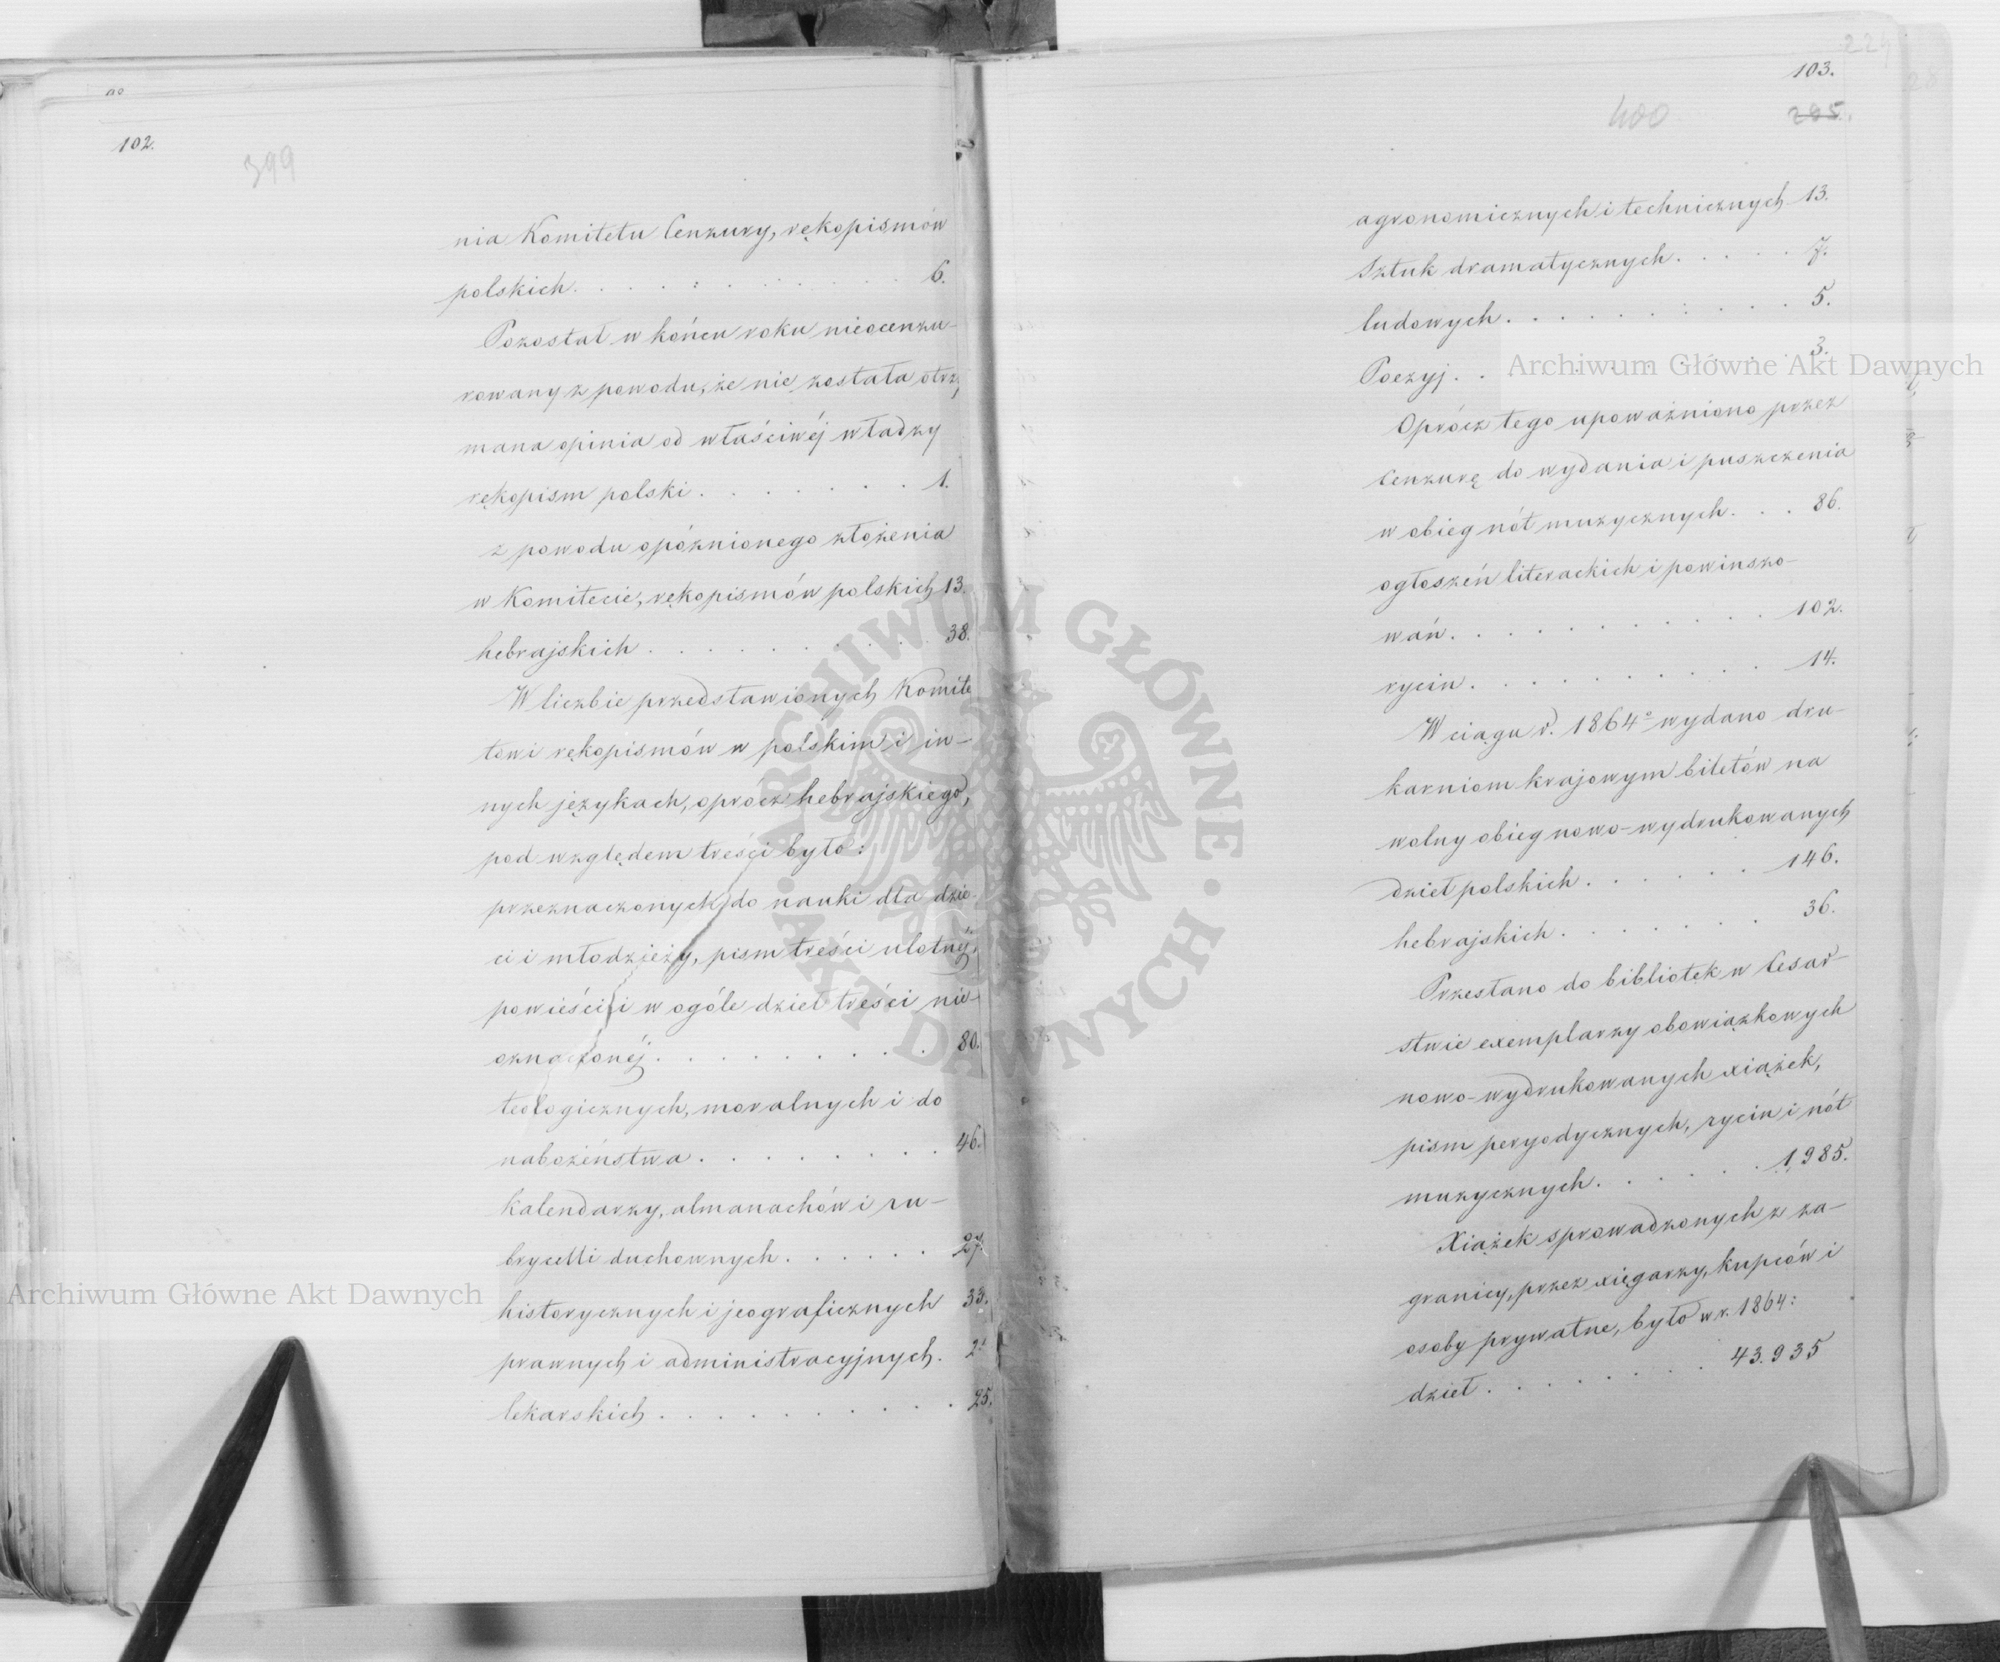 102.
399
nia Komitetu Cenzury, rękopismów
polskich . . . . . . . . . . 6.
Pozostał w końcu roku nieocenzu-
rowany z powodu, że nie została otrzy
mana opinia od właściwéj władzy
rękopism polski . . . . . . . 1.
z powodu opóznionego złożenia
w Komitecie, rękopismów polskich 13.
hebrajskich . . . . . . . . . 38.
W liczbie przedstawionych Komite
towi rękopismów w polskim i in-
nych językach, oprocz hebrajskiego,
pod względem treści było:
przeznaczonych do nauki dla dzie-
ci i młodzieży, pism treści ulotnéj,
powieści i w ogóle dzieł treści nie-
oznaczonéj . . . . . . . . . 80.
teologicznych, moralnych i do
nabożeństwa . . . . . . . . 46.
Kalendarzy, almanachów i ru-
brycelli duchownych . . . . . 27.
historycznych i jeograficznych 33.
prawnych i administracyjnych. 2.
lekarskich . . . . . . . . . 25.
103.
400
205.
agronomicznych i technicznych 13.
Sztuk dramatycznych . . . . . 7.
ludowych . . . . . . . . . . 5.
Poezyj . . . . . . . . . . 3.
Oprócz tego upoważniono przez
Cenzurę do wydania i puszczenia
w obieg nót muzycznych . . . 86.
ogłoszeń literackich i powinszo-
wań . . . . . . . . . . . 102.
rycin . . . . . . . . . . 14.
W ciągu r. 1864º wydano dru-
karniom krajowym biletów na
wolny obieg nowo-wydrukowanych
dzieł polskich . . . . . . 146.
hebrajskich . . . . . . . 36.
Przesłano do bibliotek w Cesar-
stwie exemplarzy obowiązkowych
nowo-wydrukowanych xiążek,
pism peryodycznych, rycin i nót
muzycznych . . . . . . 1,985.
Xiążek sprowadzonych z za-
granicy, przez xięgarzy, kupców i
osoby prywatne, było w r. 1864:
dzieł . . . . . . . . 43.935
Archiwum Główne Akt Dawnych
Archiwum Główne Akt Dawnych
ARCHIWUM GŁÓWNE · AKT DAWNYCH ·